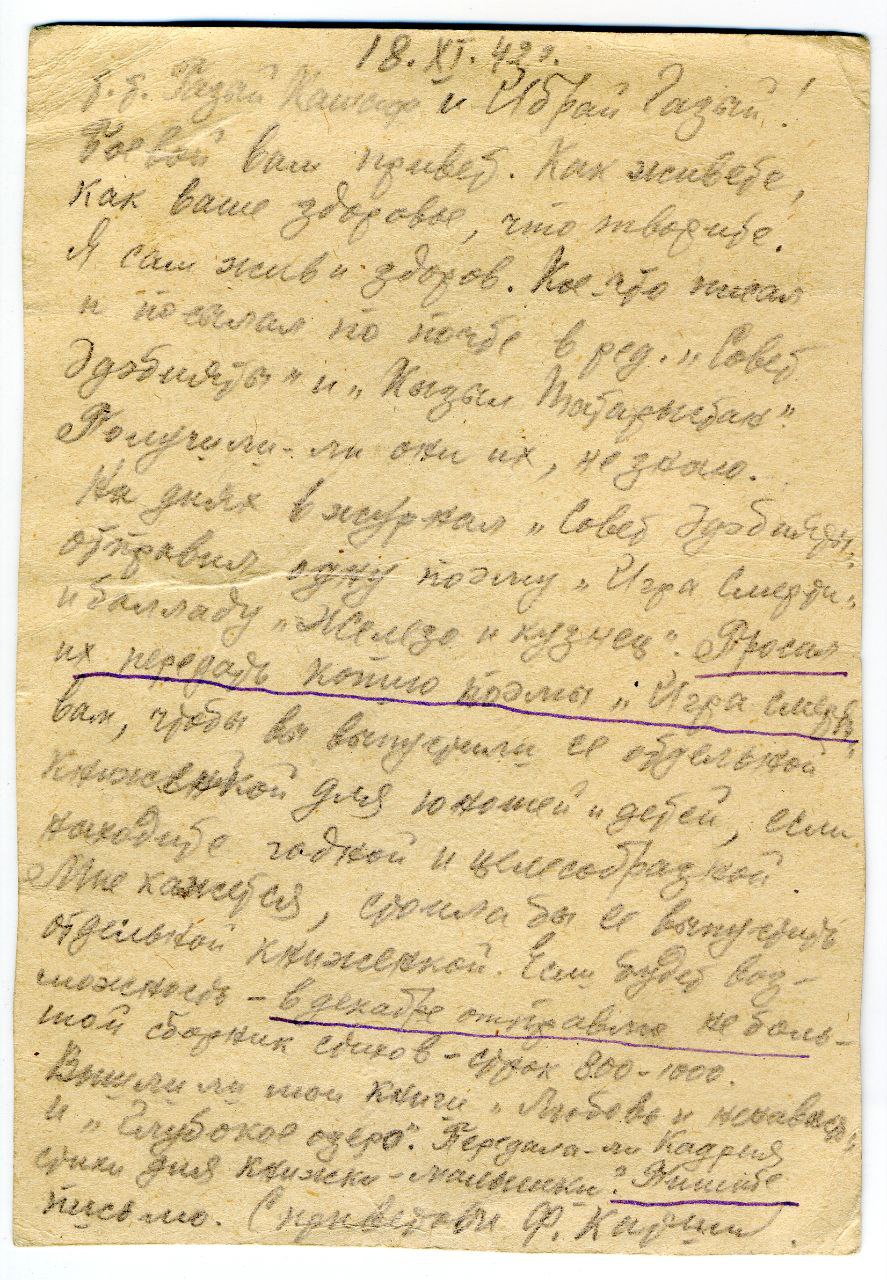 18. XI. 42 г.
т. т. Газый Кашшаф и Ибрай Газый!
Боевой вам привет. Как живете,
как ваше здоровье, что творите.
Я сам жив и здоров. Кое-что писал
и посылал по почте в ред. „Совет
Эдэбияты" и „Кызыл Татарыстан".
Получили-ли они их, не знаю.
На днях в журнал „Совет Эдэбияты"
отправил одну поэму „Игра смерти"
и балладу „Железо и кузнец". Просил
их передать копию поэмы „Игра смерти"
вам, чтобы вы выпустили ее отдельной
книженкой для юношей и детей, если
находите годной и целесобразной.
Мне кажется, стоила бы ее выпустить
отдельной книженкой. Если будет воз-
можность – в декабре отправлю неболь-
шой сборник стихов – строк 800–1000.
Вышли ли мои книги „Любовь и ненависть"
и „Глубокое озеро". Передала-ли Кадрия
стихи для книжки-малышки? Пишите
письмо. С приветом Ф. Карим.